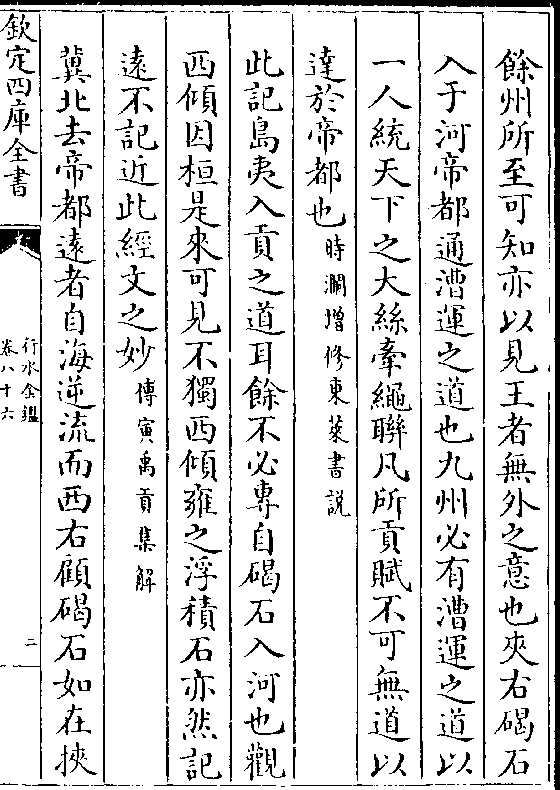 餘州所至可知亦以見王者無外之意也夾右碣石
入于河帝都通漕運之道也九州必有漕運之道以
一人統天下之大絲牽繩聯凡所貢賦不可無道以
達於帝都也時瀾增修東萊書説
此記島夷入貢之道耳餘不必專自碣石入河也觀
西傾因桓是來可見不獨西傾雍之浮積石亦然記
遠不記近此經文之妙傅寅禹貢集解
冀北去帝都遠者自海逆流而西右顧碣石如在挾
欽定四庫全書
行水金鑑
卷八十六
二